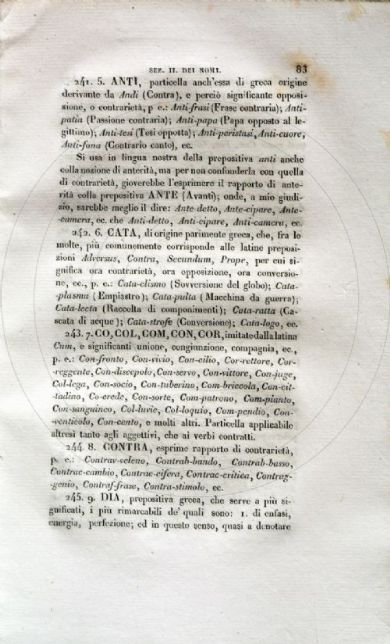 SEZ. II. DEI NOMI. 83
241. 5. ANTI, particella anch'essa di greca origine
derivante da Andi (Contra), e perciò significante opposi-
sione, o contrarietà, p e.: Anti-frasi (Frase contraria); Anti-
patia (Passione contraria); Anti-papa (Papa opposto al le-
gittimo); Anti-tesi (Tesi opposta); Anti-peristasi, Anti-cuore,
Anti-fona (Contrario canto), ec.
Si usa in lingua nostra della prepositiva anti anche
colla nozione di anterità, ma per non confonderla con quella
di contrarietà, gioverebbe l'esprimere il rapporto di ante-
rità colla prepositiva ANTE (Avanti); onde, a mio giudi-
zio, sarebbe meglio il dire: Ante-detto, Ante-cipare, Ante-
camera, ec. che Anti-detto, Anti-cipare, Anti-camera, ec.
242. 6. CATA, di origine parimente greca, che, fra lo
molte, più comunemente corrisponde alle latine preposi-
zioni Adversus, Contra, Secundum, Prope, per cui si-
gnifica ora contrarietà, ora opposizione, ora conversio-
ne, ec., p. e.: Cata-clismo (Sovversione del globo); Cata-
plasma (Empiastro); Cata-pulta (Macchina da guerra);
Cata-lecta (Raccolta di componimenti); Cata-ratta (Ca-
scata di acque); Cata-strofe (Conversione); Cata-logo, ec.
243. 7. CO, COL, COM, CON, COR, imitate dalla latina
Cum, e significanti unione, congiunzione, compagnia, ec.,
p. e.: Con-fronto, Con-vivio, Con-cilio, Cor-rettore, Cor-
reggente, Con-discepolo, Con-servo, Con-vittore, Con-juge,
Col-lega, Con-socio, Con-tuberino, Com-briccola, Con-cit-
tadino, Co-erede, Con-sorte, Com-patrono, Com-pianto,
Con-sanguineo, Col-luvie, Col-loquio, Com-pendio, Con-
venticolo, Con-cento, e molti altri. Particella applicabile
altresì tanto agli aggettivi, che ai verbi contratti.
244. 8. CONTRA, esprime rapporto di contrarietà,
p. e.: Contrav-veleno, Contrab-bando, Contrab-basso,
Contrac-cambio, Contrac-cifera, Contrac-critica, Contrag-
genio, Contraf-frase, Contra-stimolo, ec.
245. 9. DIA, prepositiva greca, che serve a più si-
gnificati, i più rimarcabili de' quali sono: 1. di enfasi,
energia, perfezione; ed in questo senso, quasi a denotare